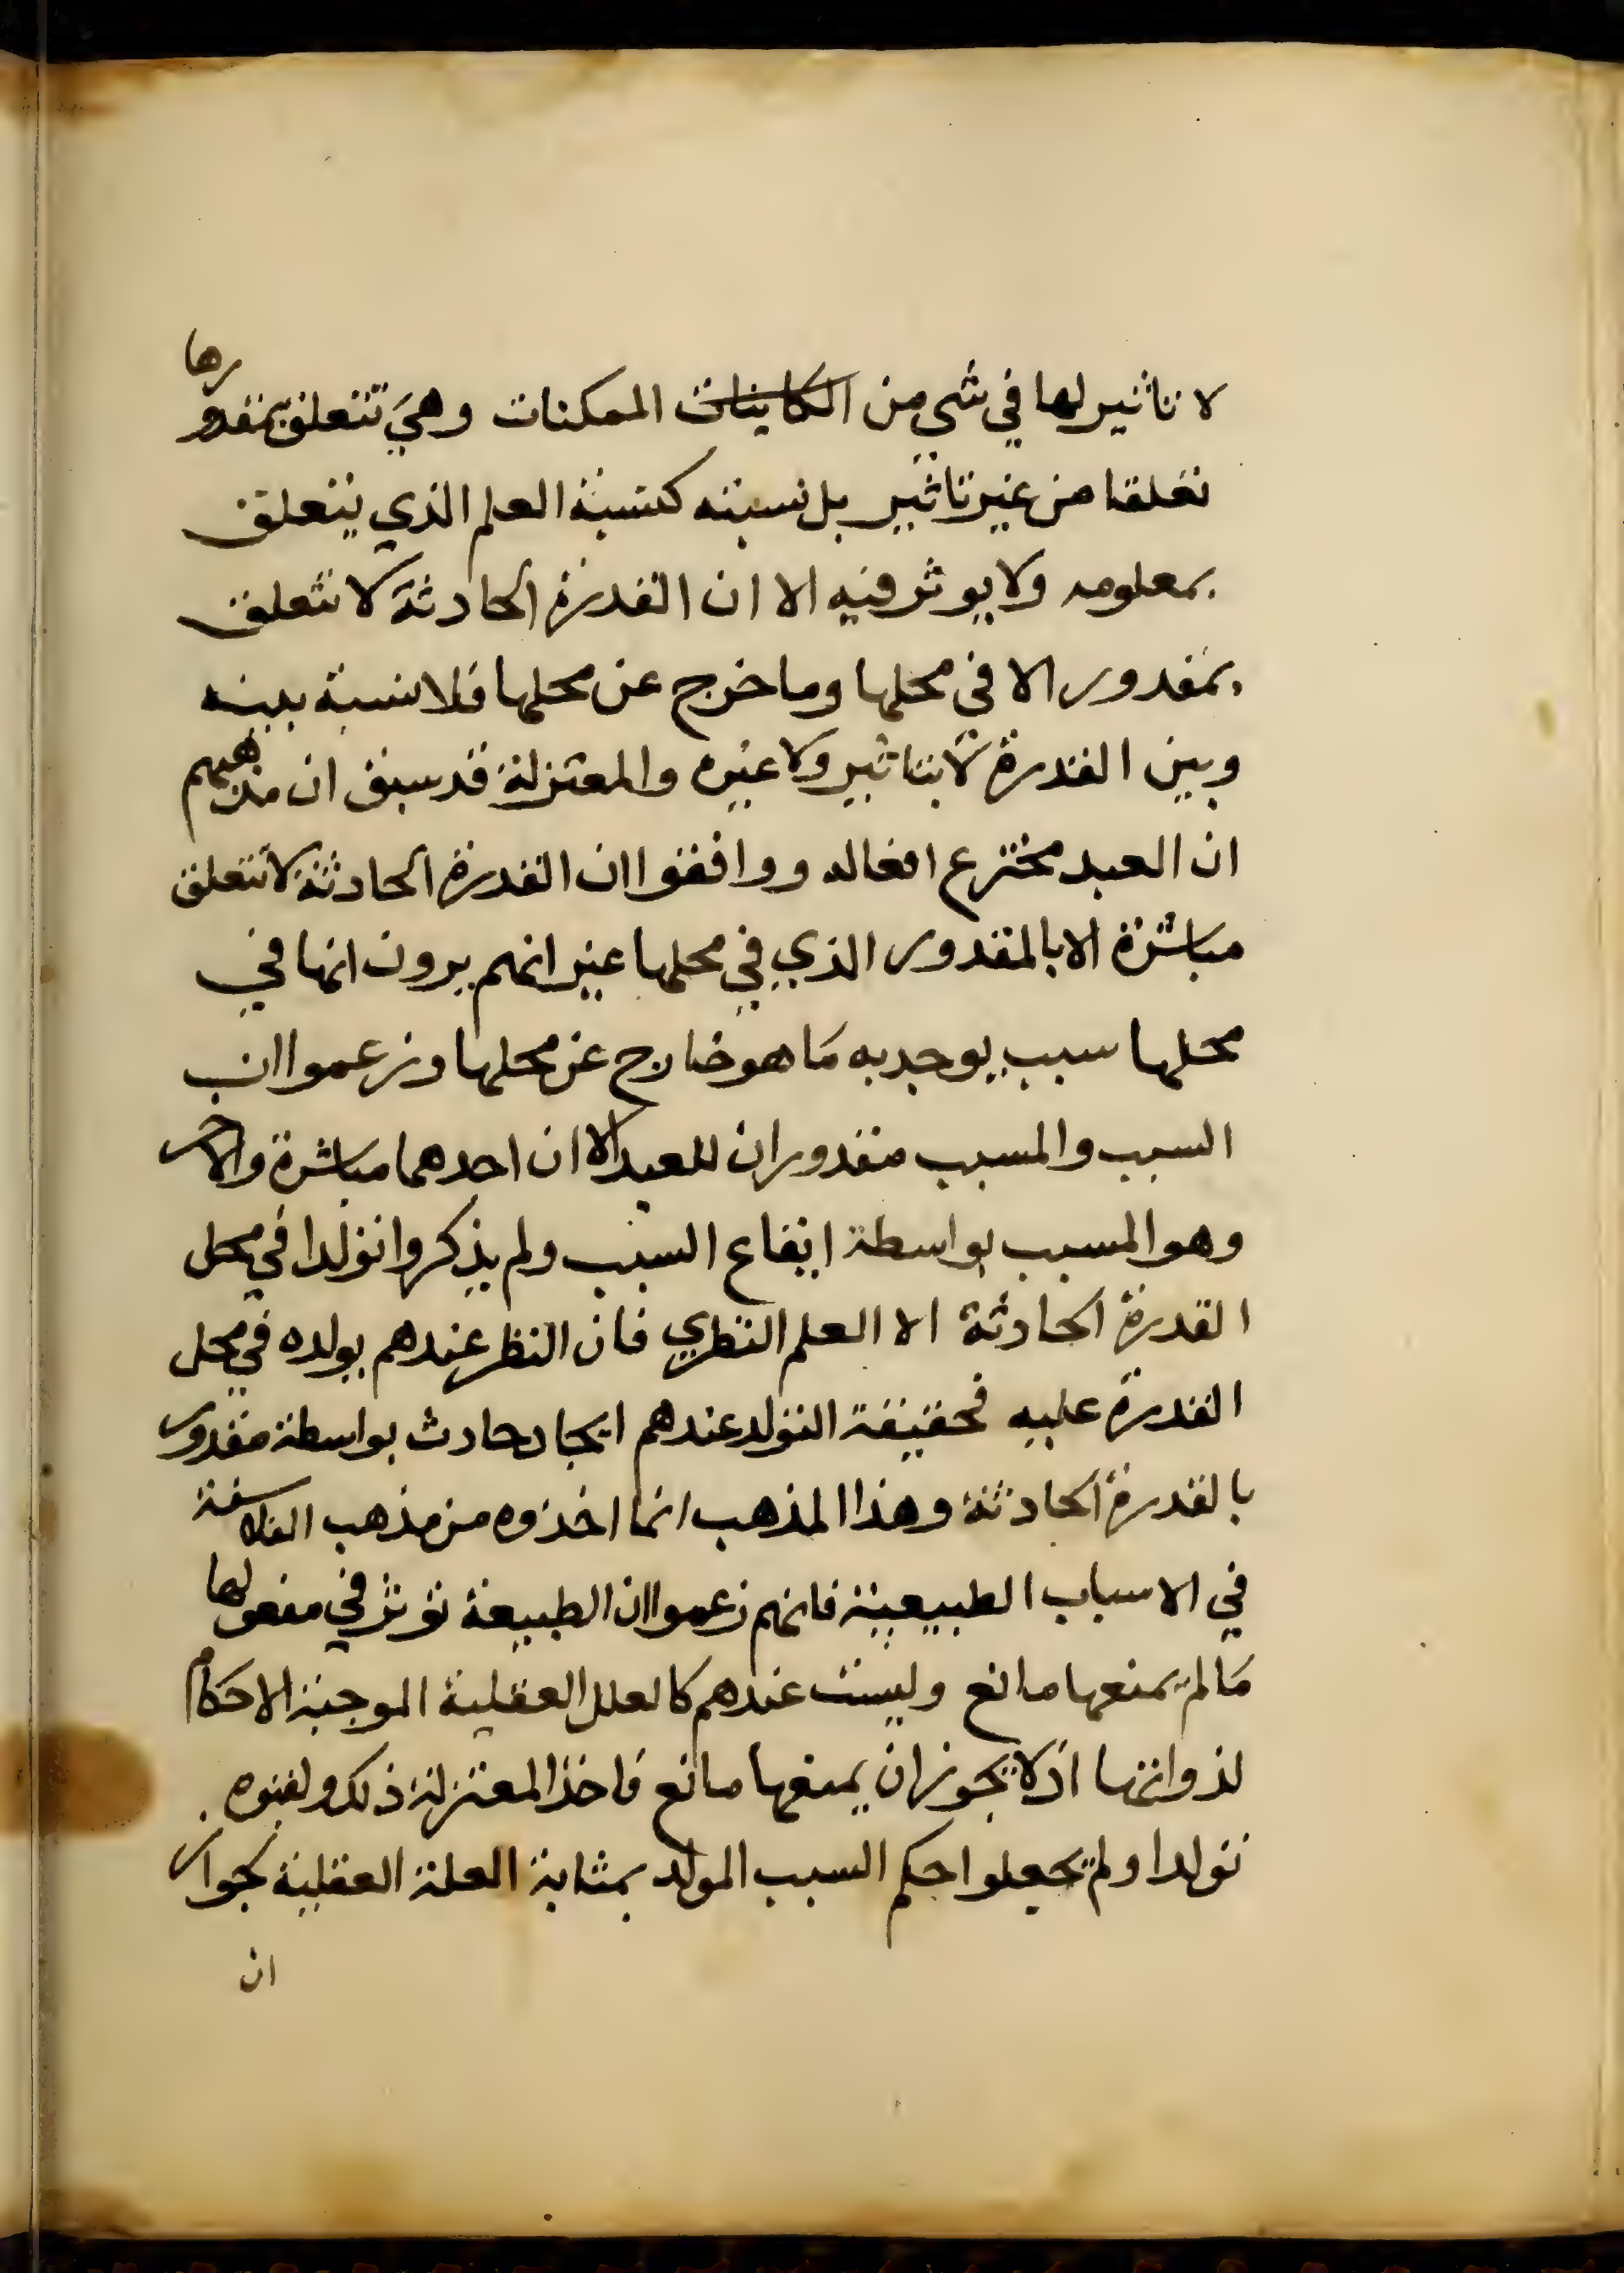 لا تاثير لها في شي من الكاينات الممكنات وهي تتعلق بمقدورها
تعلقا من غير تاثير بل نسبته كنسبة العلم الذي يتعلق
بمعلومه ولا يوثر فيه الا ان القدرة الحادثة لا تتعلق
بمقدور الا في محلها وما خرج عن محلها فلا نسبة بينه
وبين القدرة لا بتاثير ولا غيره والمعتزلة قد سبق ان مذهبهم
ان العبد مخترع افعاله ووافقوا ان القدرة الحادثة لا تتعلق
مباشرة الا بالمقدور الذي في محلها غير انهم يرون انها في
محلها سبب يوجد به ما هو خارج عن محلها وزعموا ان
السبب والمسبب مقدوران للعبد الا ان احدهما مباشرة والاخر
وهو المسبب بواسطة ايقاع السبب ولم يذكروا تولدا في محل
القدرة الحادثة الا العلم النظري فان النظر عندهم يولده في محل
القدرة عليه فحقيقة التولد عندهم ايجاد حادث بواسطة مقدور
بالقدرة الحادثة وهذا المذهب انما اخذوه من مذهب الفلاسفة
في الاسباب الطبيعية فانهم زعموا ان الطبيعة توثر في مفعولها
ما لم يمنعها مانع وليست عندهم كالعلل العقلية الموجبة الاحكام
لذواتها اذ لا يجوز ان يمنعها مانع فاخذ المعتزلة ذلك ولقبوه
تولدا ولم يجعلوا حكم السبب المولد بمثابة العلة العقلية لجواز
ان